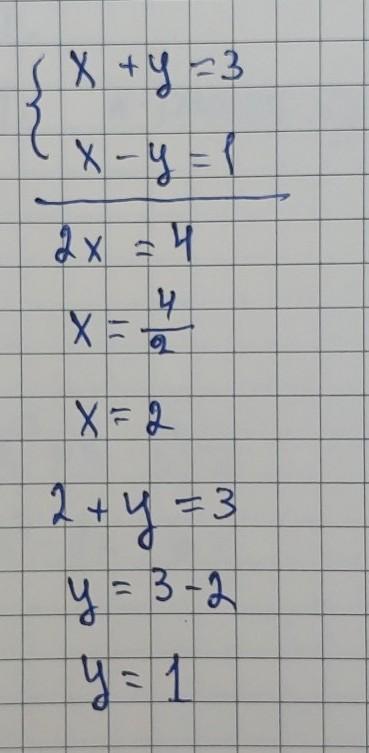 x + y = 3
x - y = 1
2x = 4
x = 4/2
x = 2
2 + y = 3
y = 3 - 2
y = 1